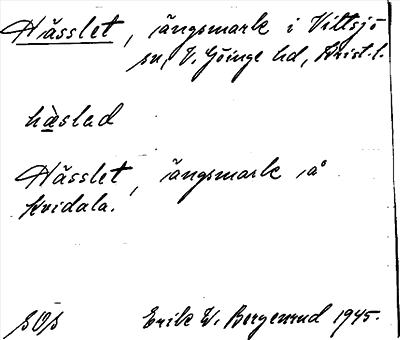 Hässlet, ängsmark i Vittsjö
sn, V. Göinge hd, Krist. l.
hàslad
Hässlet, ängsmark på
Kvidala.
SOS Erik W. Bergenrud 1945.